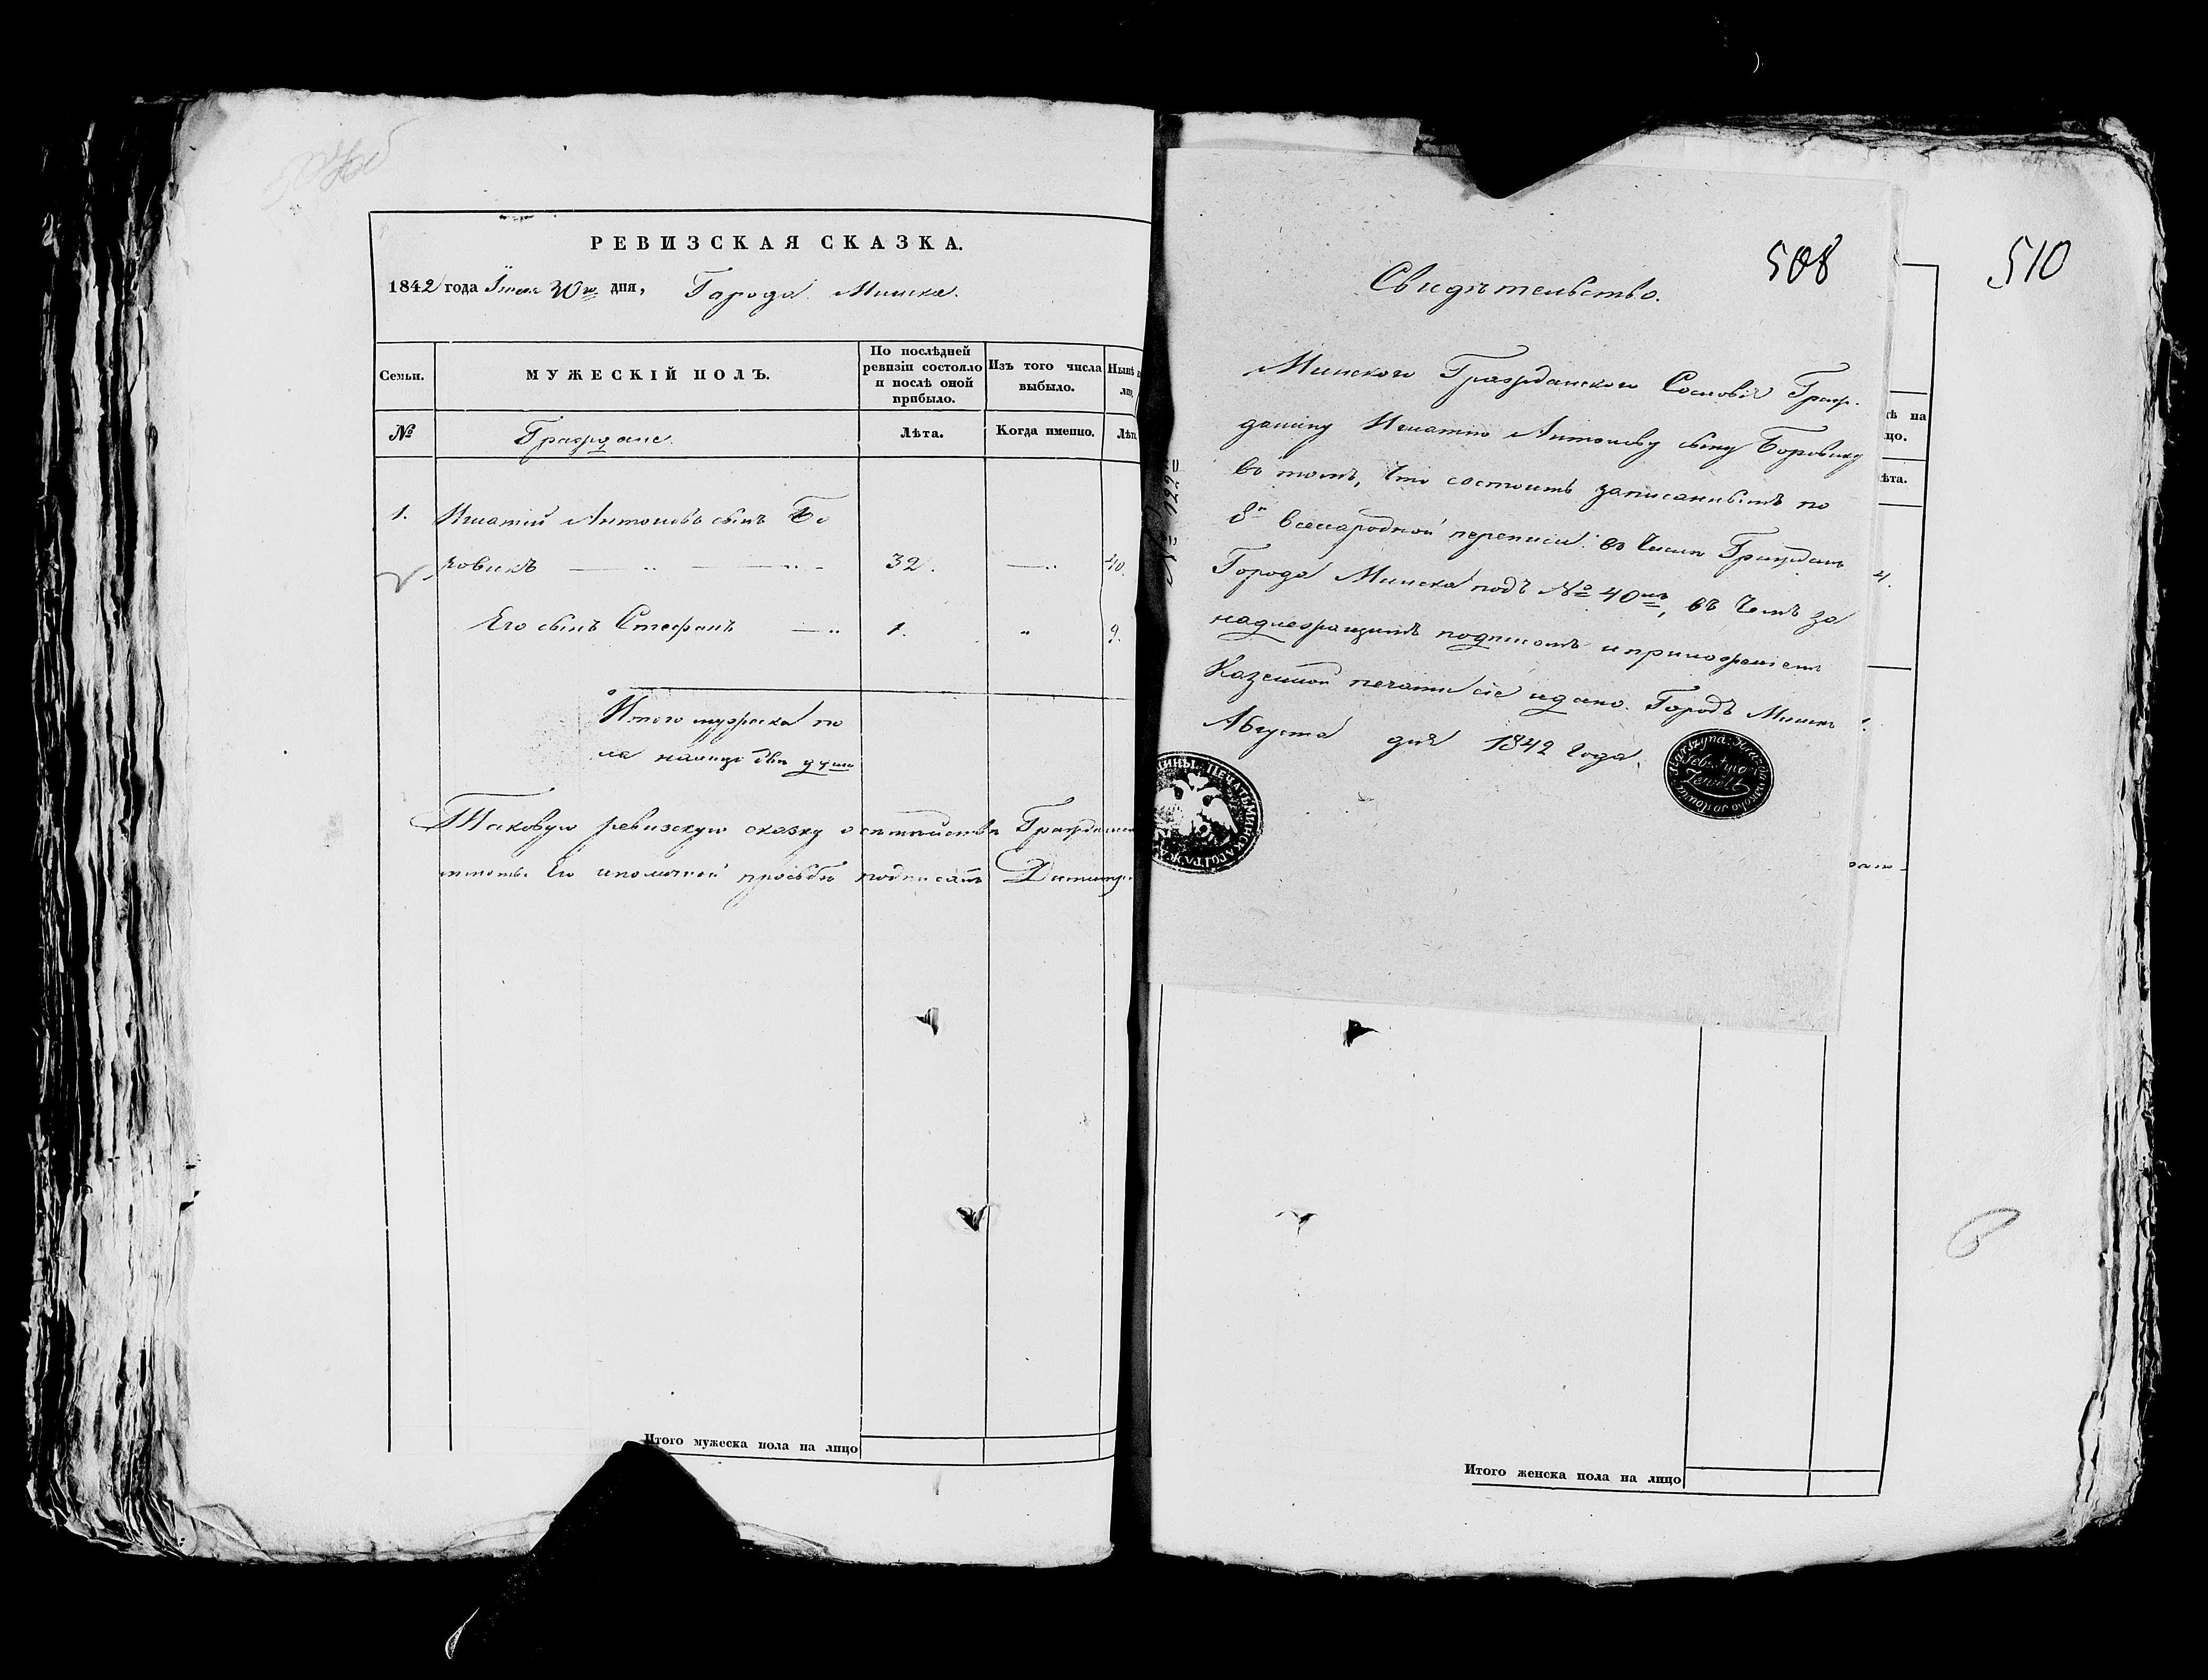 РЕВИЗСКАЯ СКАЗКА.
1842 года Іюля 30го дня, Города Минска.
Семьи.
МУЖЕСКІЙ ПОЛЪ.
По послѣдней
ревизіи состояло
и послѣ оной
прибыло.
Изъ того числа
выбыло.
Нынѣ
№
Граждане.
Лѣта.
Когда именно.
Лѣт
1.
Игнатій Антоновъ сынъ Бо
ровикъ
32.
40.
Его сынъ Стефанъ
1.
9.
Итого мужеска по
ла налицо двѣ души
Таковую ревизскую сказку о семействѣ
его личной прозьбѣ подписалъ
Итого мужеска пола на лицо
508
510
Свидѣтельство.
Минскаго Гражданскаго Сословія Граж-
данину Игнатію Антонову сыну Боровику
въ томъ, что состоитъ записаннымъ по
8й всенародной переписи въ числѣ Гражданъ
Города Минска подъ № 40мъ, въ чемъ за
надлежащимъ подписомъ и приложеніемъ
Казенной печати сіе и дано. Городъ Минскъ
Августа дня 1842 года.
ѣ на
цо.
ѣта.
Итого женска пола на лицо